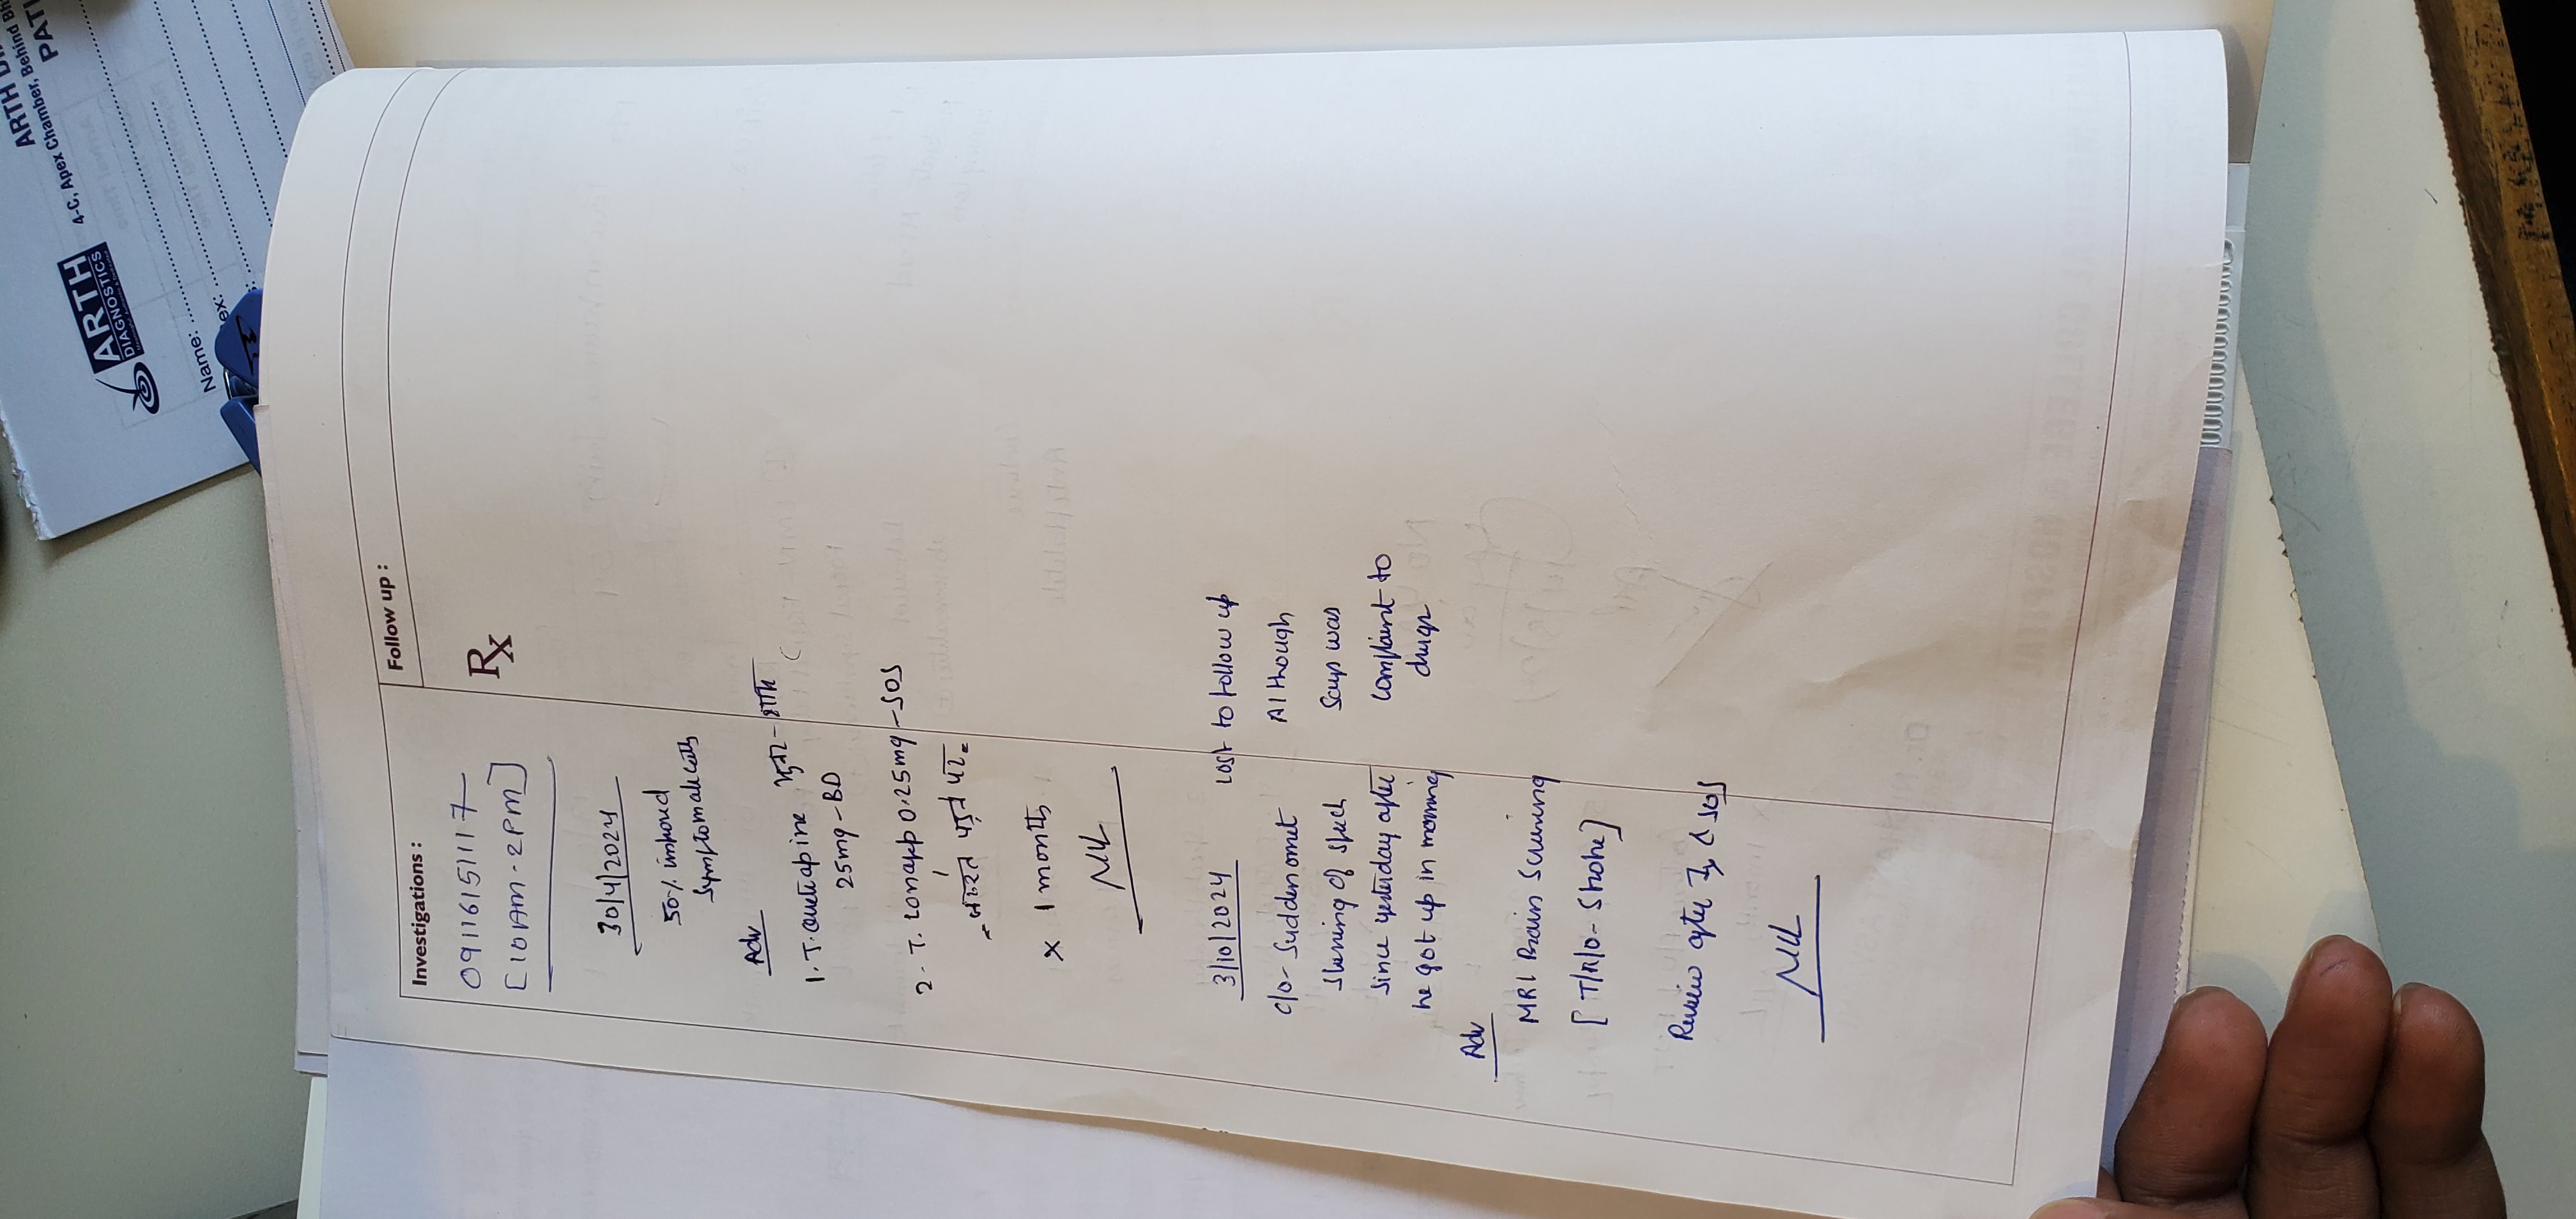 ARTH
4-C, Apex Chamber, Behind
PATI
ARTH
DIAGNOSTICS
Name:
ex:
Investigations :
Follow up :
Rx
09116151117
[10AM-2PM]
30/4/2024
50% improved
symptomatically
Adv
1. T. Quetiapine सुबह - शाम
25mg - BD
2. T. Lonapp 0.25mg - SOS
- जरूरत पड़ने पर.
x 1 month
3/10/2024 Lost to follow up
c/o - Sudden onset Although
Slurring of speech Says was
since yesterday after complaint to
he got up in morning drugs
Adv
MRI Brain Screening
[T/R/O - Stroke]
Review after & SOS